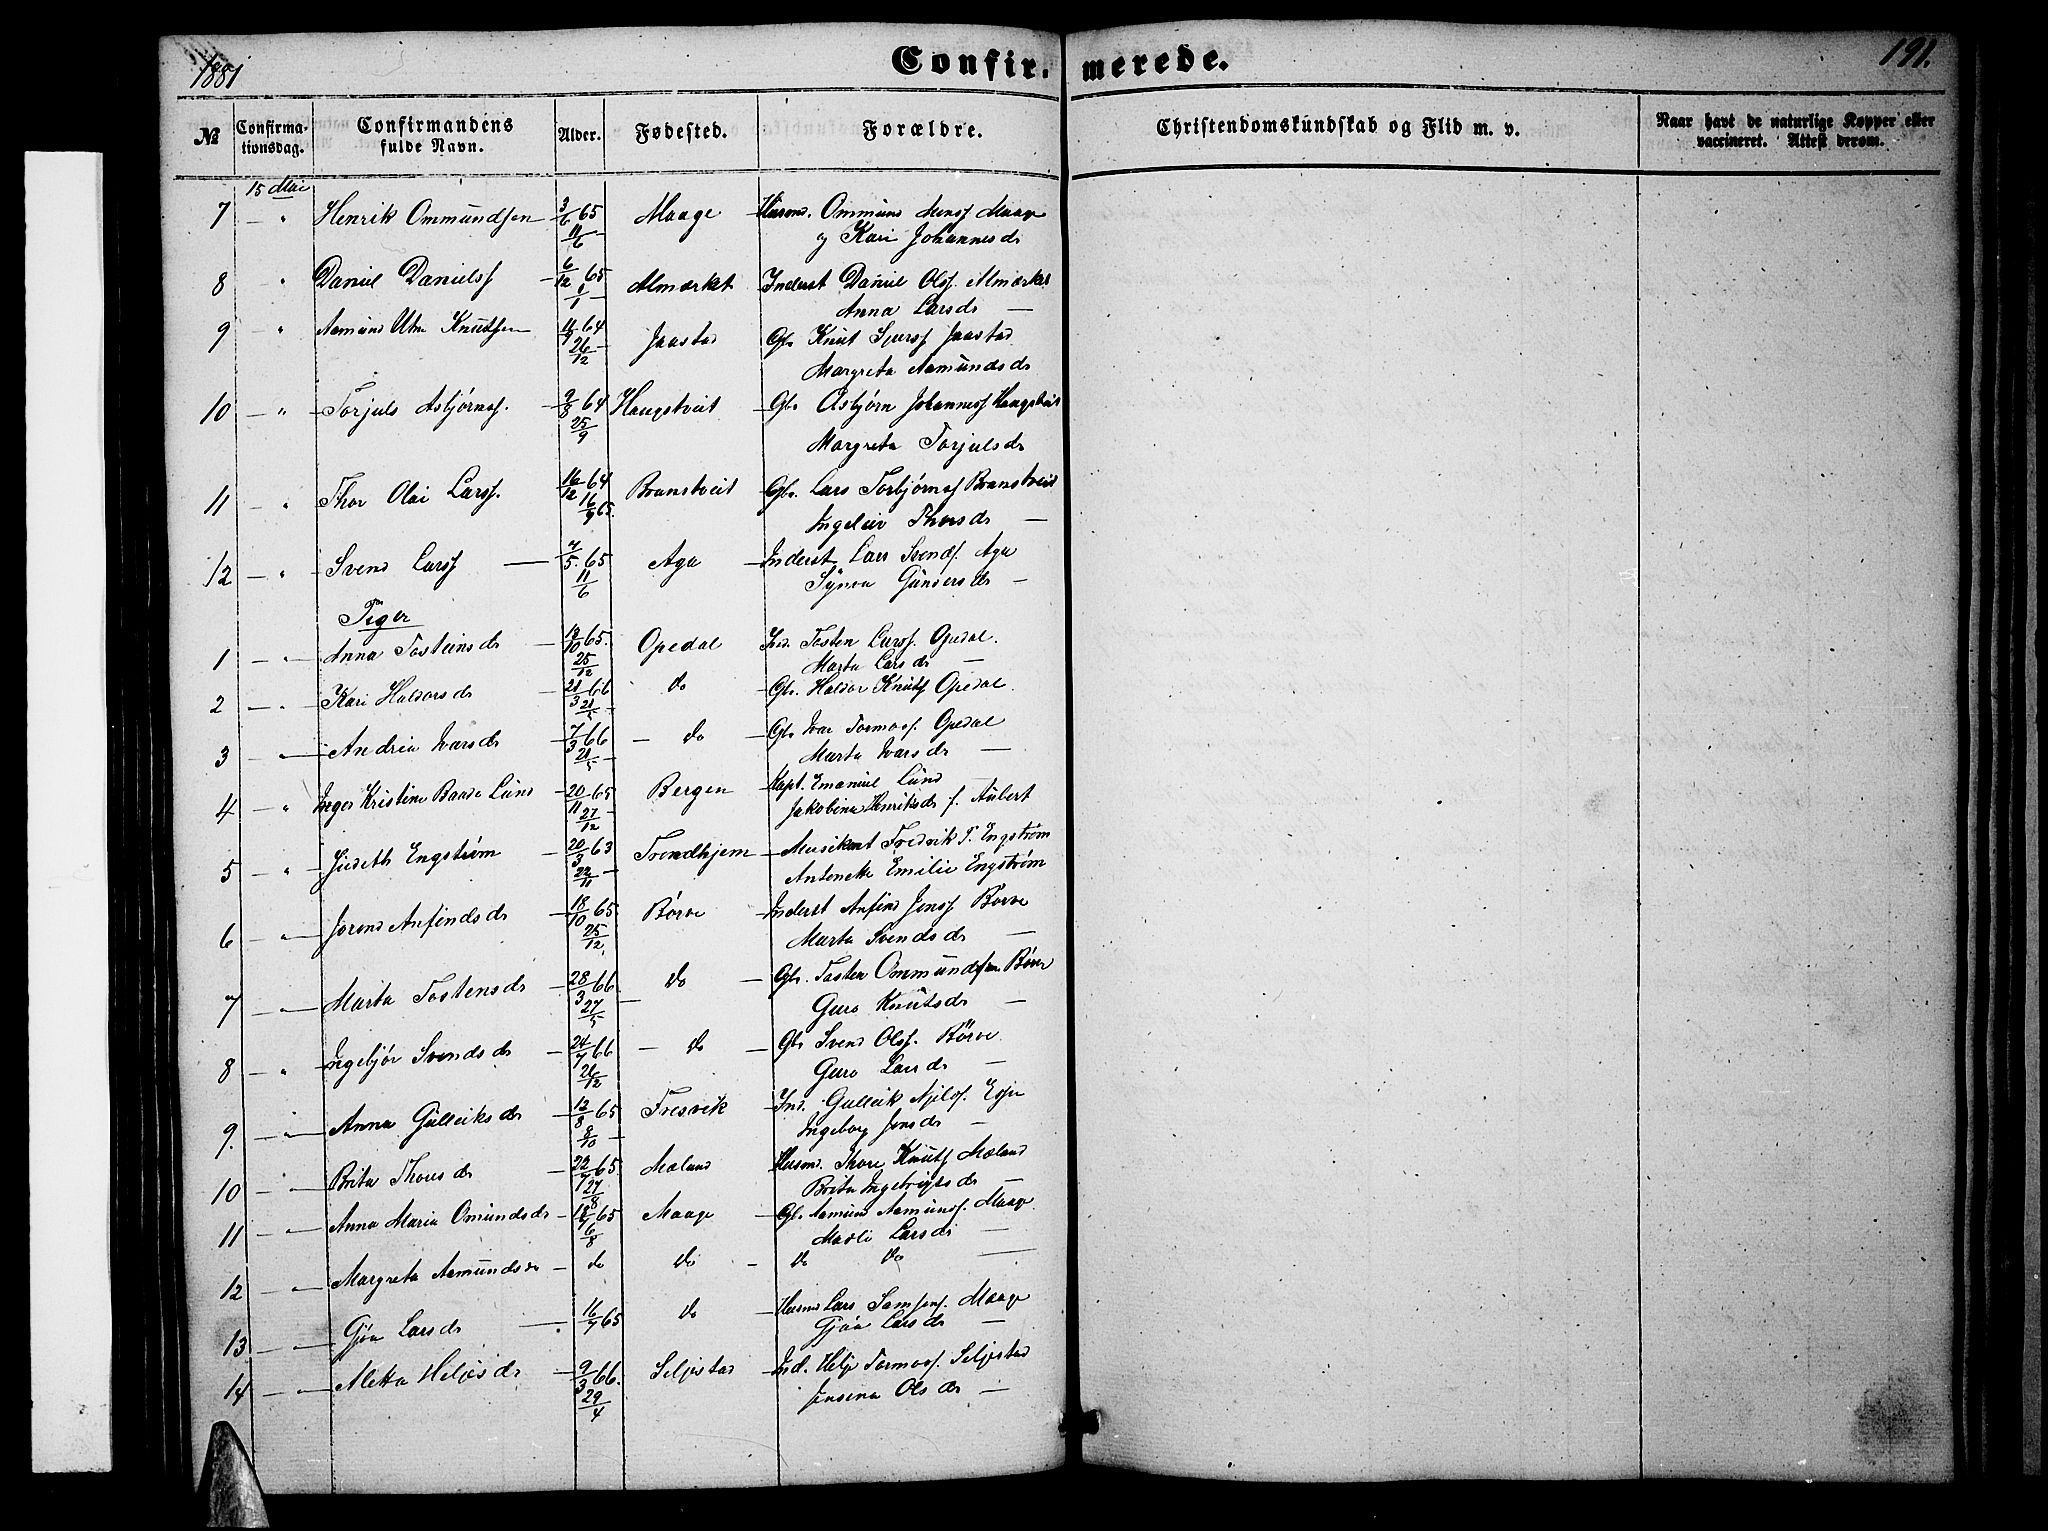 1881
Confir- merede.
191.
№
Confirma-
tionsdag.
Confirmandens
fulde Navn.
Alder.
Fødested.
Forældre.
Christendomskundskab og Flid m. v.
Naar havt de naturlige Kopper eller
vaccineret. Attest derom.
15 Mai
7 — " Henrik Ommundsen 3/6 65 Maage Husmd. Ommund Monss Maage
11/6 og Kari Johannesdr
8 " Daniel Danielss 6/12 65 Almerket Inderst Daniel Olss. Almerket
1/1 Anna Larsdr —
9 " Aamund Utne Knudsen 64 Jaastad Gbr Knut Sjurss Jaastad
26/12 Margreta Aamundsdr
10 — " Torjuls Asbjørnss. 9/8 64 Haugstveit Gbr Asbjørn Johanness Haugstveit
25/9 Margreta Torjulsdr
11 — " Thor Olai Larss. 16/12 64 Branstveit Gbr. Lars Torbjørnss Branstveit
16/9 65. Ingeleiv Thorsdr —
12 — " Svend Larss — 7/5 65 Aga Inderst Lars Svends. Aga
11/6 Synva Gundersdr —
Piger
1 — " Anna Tosteinsdr 65. Opedal Ind. Tosten Larss. Opedal.
25/12 Marta Larsdr —
2 — " Kari Haldorsdr 21/3 66 do Gbr. Haldor Knuts Opedal.
21/5
3 " Andria Ivarsdr 7/3 66 — do Gbr Ivar Tormoss. Opedal
21/5 Marta Ivarsdr —
4 — " Inger Kristine Baade Lund 20/11 65 Bergen Kapt. Emanuel Lund
27/12 Jakobine Henriksdr f. Aubert
5 — " Judith Engstrøm 20/3 63 Trondhjem Musikant Fredrik T. Engstrøm
22/11 Antonette Emilie Engstrøm
6 — " Jorend Anfindsdr 18/10 65 Børve Inderst Anfind Jonss Børve
25/12 Marta Svendsdr —
7 " Marta Tostensdr 28/3 66 do Gbr. Tosten Ommundsen Børve
27/5 Guro Knutsdr —
8 — " Ingebjør Svendsdr 24/7 66 — do Gbr Svend Olss. Børve
26/12 Guro Larsdr —
9. — " Anna Gulleiksdr 12/8 65 Fresvik Ind. Gulleik Njelss. Espe
8/10 Ingeborg Jonsdr —
10 — " Brita Thoresdr 22/7 65 Mæland Husmd. Thore Knuts Mæland
27/8 Brita Ingebrigtsdr —
11 — " Anna Maria Omundsdr 65 Maage Gbr Aamund Aamunds. Maage
6/8 Madli Larsdr —
12 — " Margreta Aamundsdr — do do — do do —
13 — " Gjøa Larsdr — 16/7 65 do Husmd Lars Samsons. Maage
Gjøa Larsdr —
14 — " Aletta Heljesdr 9/3 66. Seljestad Ind. Helje Tormoss. Seljestad
29/4 Jensena Olsdr —